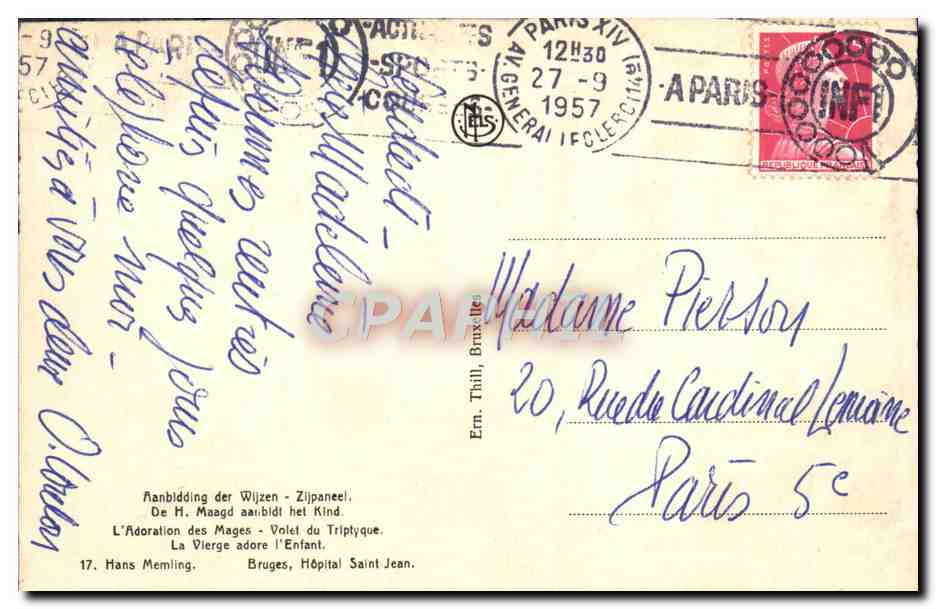 A PARIS
INF1
-ACTIVITES
-SPORTS-
PARIS XIV
12H30
27 - 9
1957
AV. GENERAL LECLERC (14e)
-A PARIS
INF1
POSTES
REPUBLIQUE FRANCAISE
Vendredi -
Madeleine
sommes rentrés
depuis quelques jours
telephone mur -
amitiés à vous deux
Madame Pierson
20, Rue du Cardinal Lemoine
Paris 5e
Ern. Thill, Bruxelles
CPARAMA
Aanbidding der Wijzen - Zijpaneel.
De H. Maagd aanbidt het Kind.
L'Adoration des Mages - Volet du Triptyque.
La Vierge adore l'Enfant.
17. Hans Memling. Bruges, Hôpital Saint Jean.